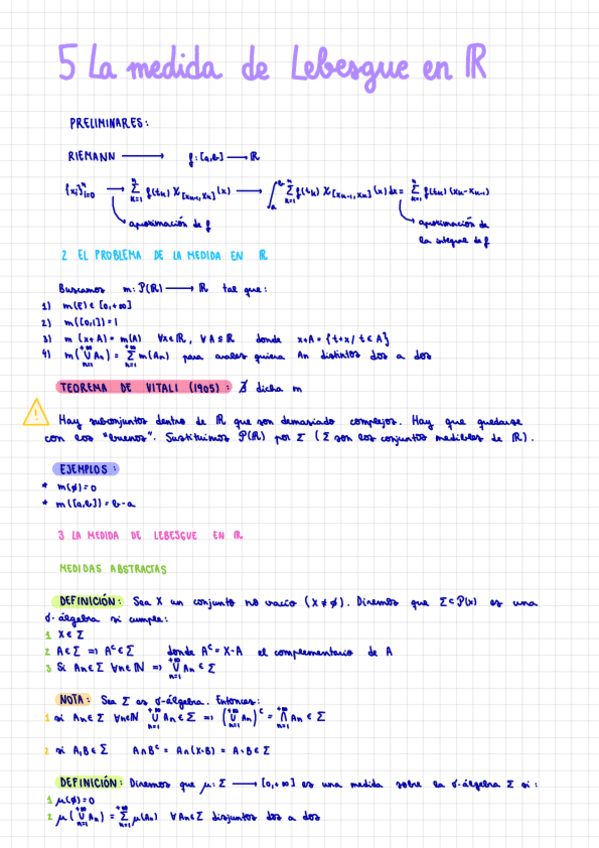 5 La medida de Lebesgue en ℝ
PRELIMINARES:
RIEMANN ⟶ f: [a,b] ⟶ ℝ
{x_i}_{i=0}^n ⟶ ∑_{k=1}^n f(t_k) χ_{[x_{k-1}, x_k]}(x) ⟶ ∫_a^b ∑_{k=1}^n f(t_k) χ_{[x_{k-1}, x_k]}(x) dx = ∑_{k=1}^n f(t_k)(x_k - x_{k-1})
aproximación de f
aproximación de
la integral de f
2 EL PROBLEMA DE LA MEDIDA EN ℝ
Buscamos m: P(ℝ) ⟶ ℝ tal que:
1) m(E) ∈ [0,+∞]
2) m([0,1]) = 1
3) m(x+A) = m(A) ∀x∈ℝ, ∀A⊆ℝ donde x+A = {t+x / t∈A}
4) m(⋃_{n=1}^{+∞} An) = ∑_{n=1}^{+∞} m(An) para cuales quiera An distintos dos a dos
TEOREMA DE VITALI (1905): ∄ dicha m
! Hay subconjuntos dentro de ℝ que son demasiado complejos. Hay que quedarse
con los "buenos". Sustituimos P(ℝ) por Σ (Σ son los conjuntos medibles de ℝ).
EJEMPLOS:
* m(∅)=0
* m([a,b]) = b-a
3 LA MEDIDA DE LEBESGUE EN ℝ
MEDIDAS ABSTRACTAS
DEFINICIÓN: Sea X un conjunto no vacío (X≠∅). Diremos que Σ⊂P(X) es una
σ-álgebra si cumple:
1 X∈Σ
2 A∈Σ ⇒ A^c∈Σ donde A^c = X-A el complementario de A
3 Si An∈Σ ∀n∈ℕ ⇒ ⋃_{n=1}^{+∞} An ∈ Σ
NOTA: Sea Σ es σ-álgebra. Entonces:
1 si An∈Σ ∀n∈ℕ ⋃_{n=1}^{+∞} An ∈ Σ ⇒ (⋃_{n=1}^{+∞} An)^c = ⋂_{n=1}^{+∞} An ∈ Σ
2 si A,B∈Σ A∩B^c = A∩(X\B) = A\B∈Σ
DEFINICIÓN: Diremos que μ: Σ ⟶ [0,+∞] es una medida sobre la σ-álgebra Σ si:
1 μ(∅)=0
2 μ(⋃_{n=1}^{+∞} An) = ∑_{n=1}^{+∞} μ(An) ∀An∈Σ disjuntos dos a dos